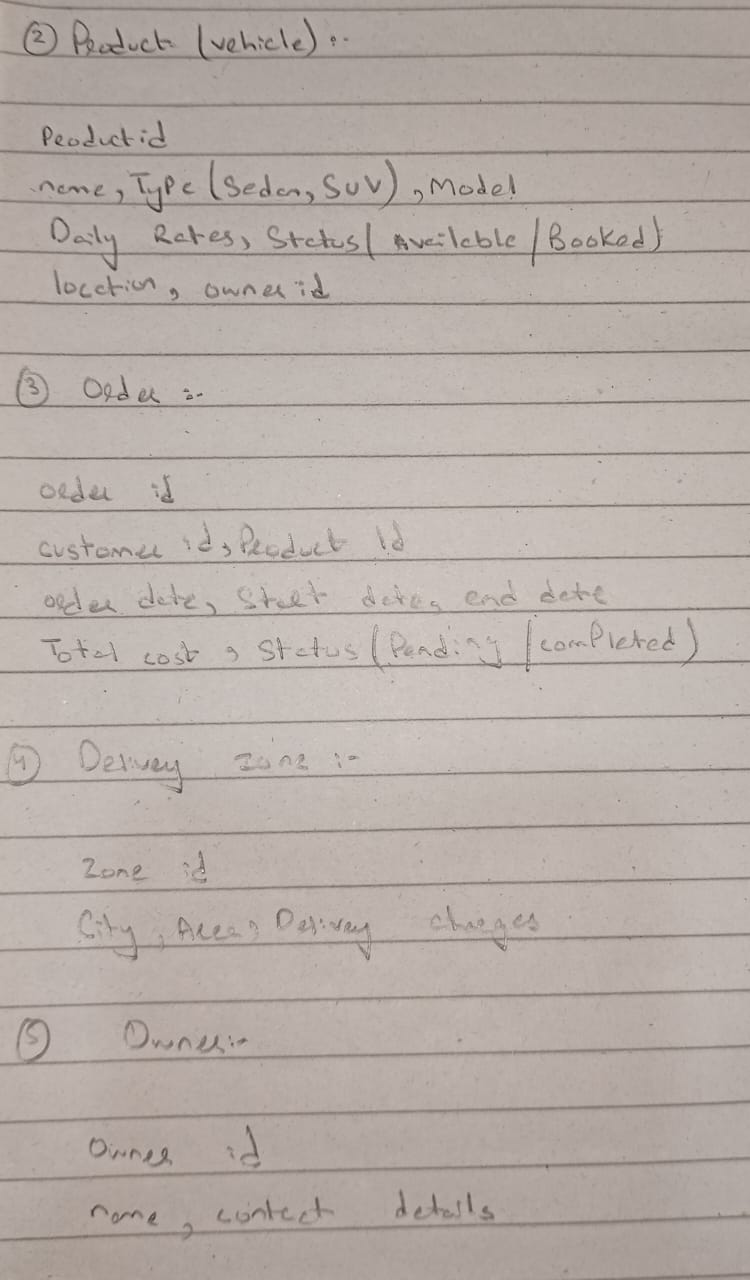 ② Product (vehicle) :-
Product id
name, Type (Sedan, SUV), Model
Daily Rates, Status (Available/Booked)
location, owner id
③ Order :-
order id
customer id, Product Id
order date, Start date, end date
Total cost, Status (Pending/completed)
④ Delivey zone :-
Zone id
City, Area, Delivery charges
⑤ Owner :-
Owner id
name, contact details